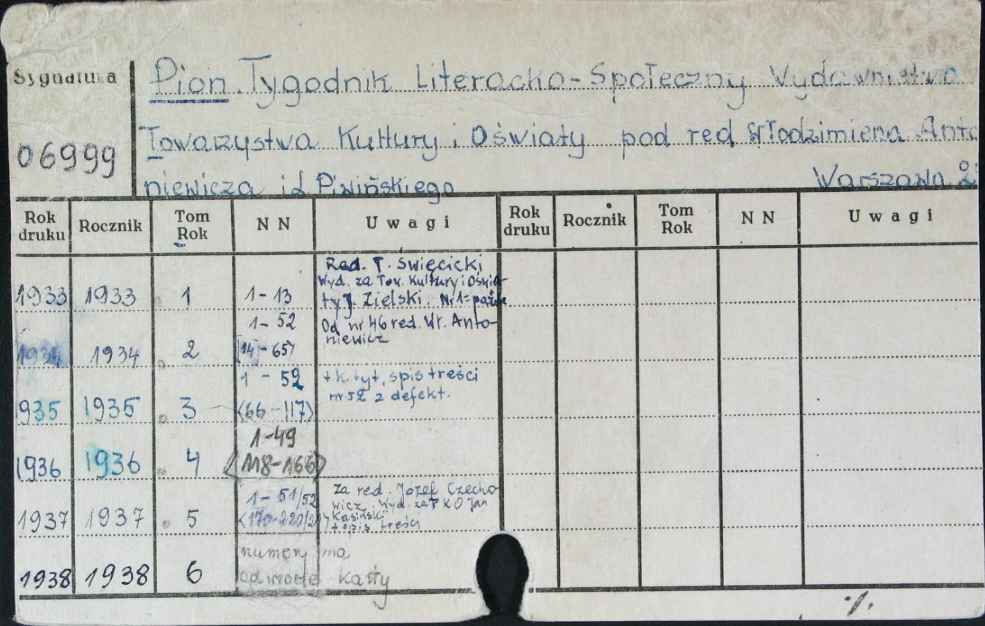 Sygnatura
06999
Pion Tygodnik Literacko-Społeczny Wydawnictwo
Towarzystwa Kultury i Oświaty pod red Włodzimierza Anto
niewicza i L Piwińskiego Warszawa
Rok druku Rocznik Tom Rok N N Uwagi Rok druku Rocznik Tom Rok N N Uwagi
1933 1933 1 1-13
Red. T. Święcicki,
Wyd. za Tow. Kultury i Oświa-
ty J. Zielski. Nr 1-
1934 1934 2 1-52
(14-65)
Od nr 46 red. Wł. Anto-
niewicz
935 1935 3 1-52
(66-117)
+ k. tyt., spis treści
nr 52 z defekt.
1936 1936 4 1-49
(118-166)
1937 1937 5 1-51/52
Za red. Józef Czecho-
wicz, Wyd. za T K O Jan
Kasiński
+ spis treści
1938 1938 6 numery na
odwrocie karty
./.